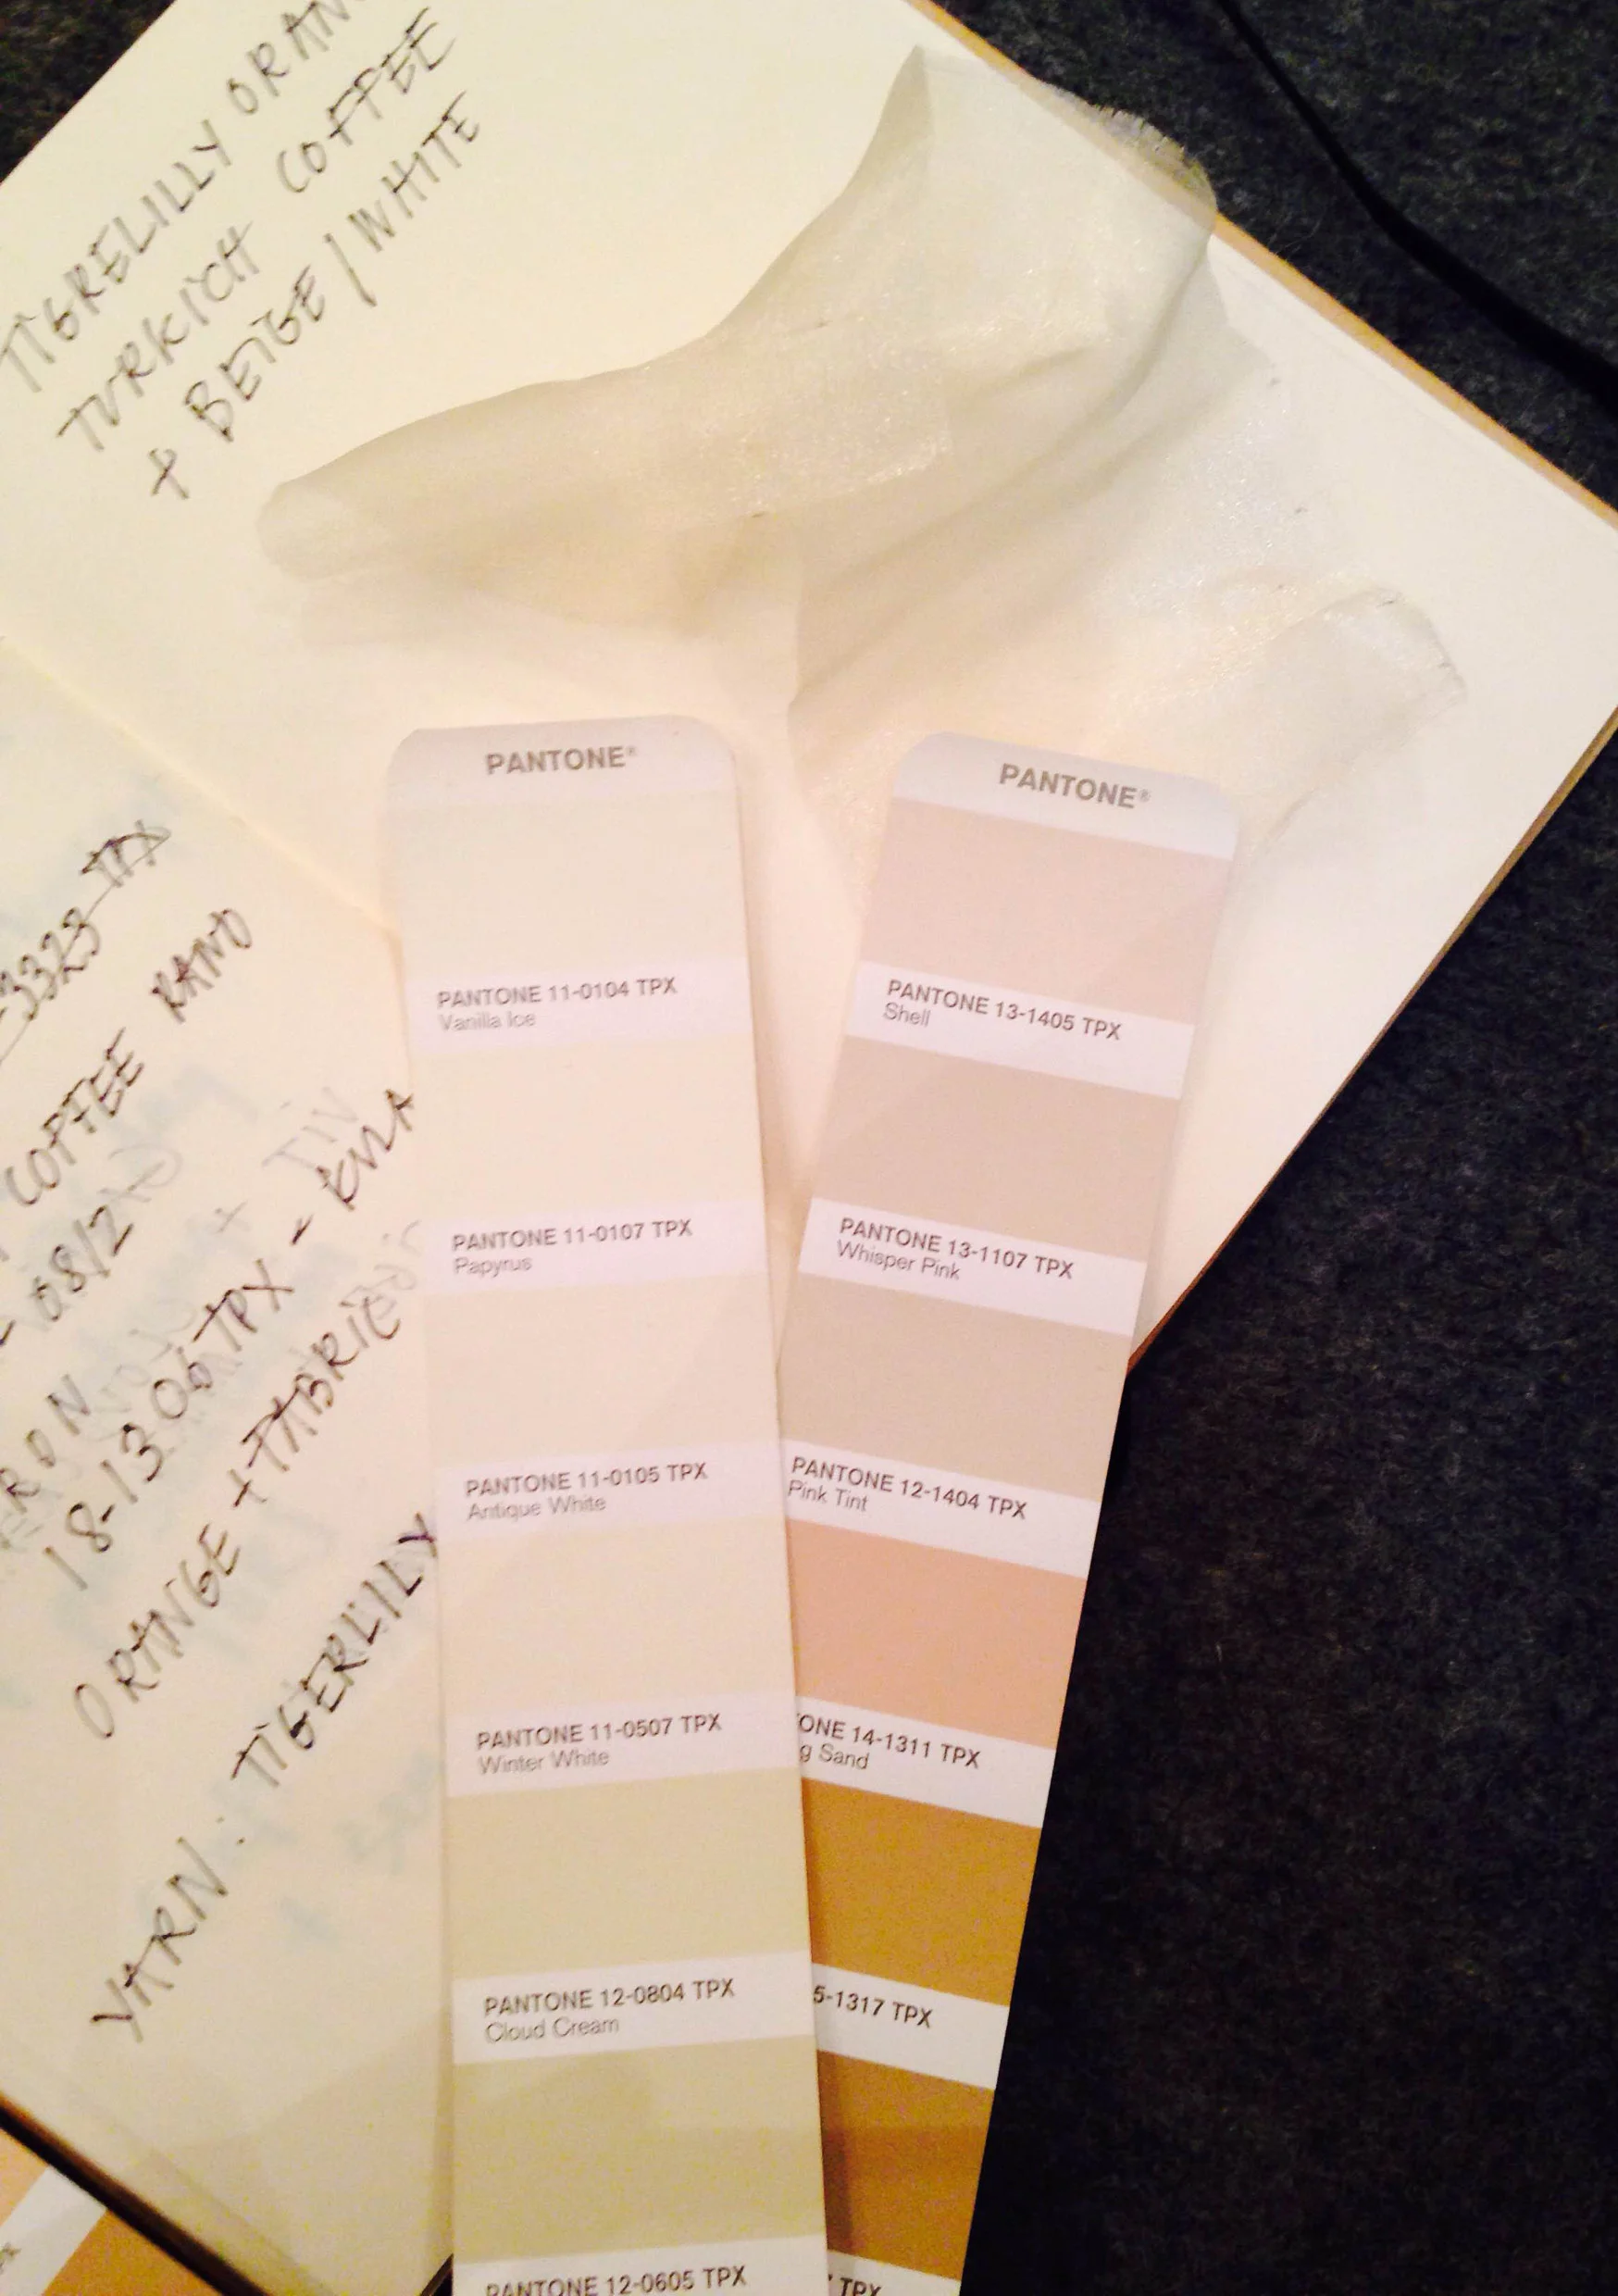 TIGRELILLY
TURKICH COFFEE
+ BEIGE / WHITE
3323 TPX
COFFEE KAND
08/2
18-1306 TPX -
ORANGE + FABRIC
YARN: TIGERLILY
PANTONE®
PANTONE 11-0104 TPX
Vanilla Ice
PANTONE 11-0107 TPX
Papyrus
PANTONE 11-0105 TPX
Antique White
PANTONE 11-0507 TPX
Winter White
PANTONE 12-0804 TPX
Cloud Cream
PANTONE 12-0605 TPX
PANTONE®
PANTONE 13-1405 TPX
Shell
PANTONE 13-1107 TPX
Whisper Pink
PANTONE 12-1404 TPX
Pink Tint
TONE 14-1311 TPX
g Sand
5-1317 TPX
TPX